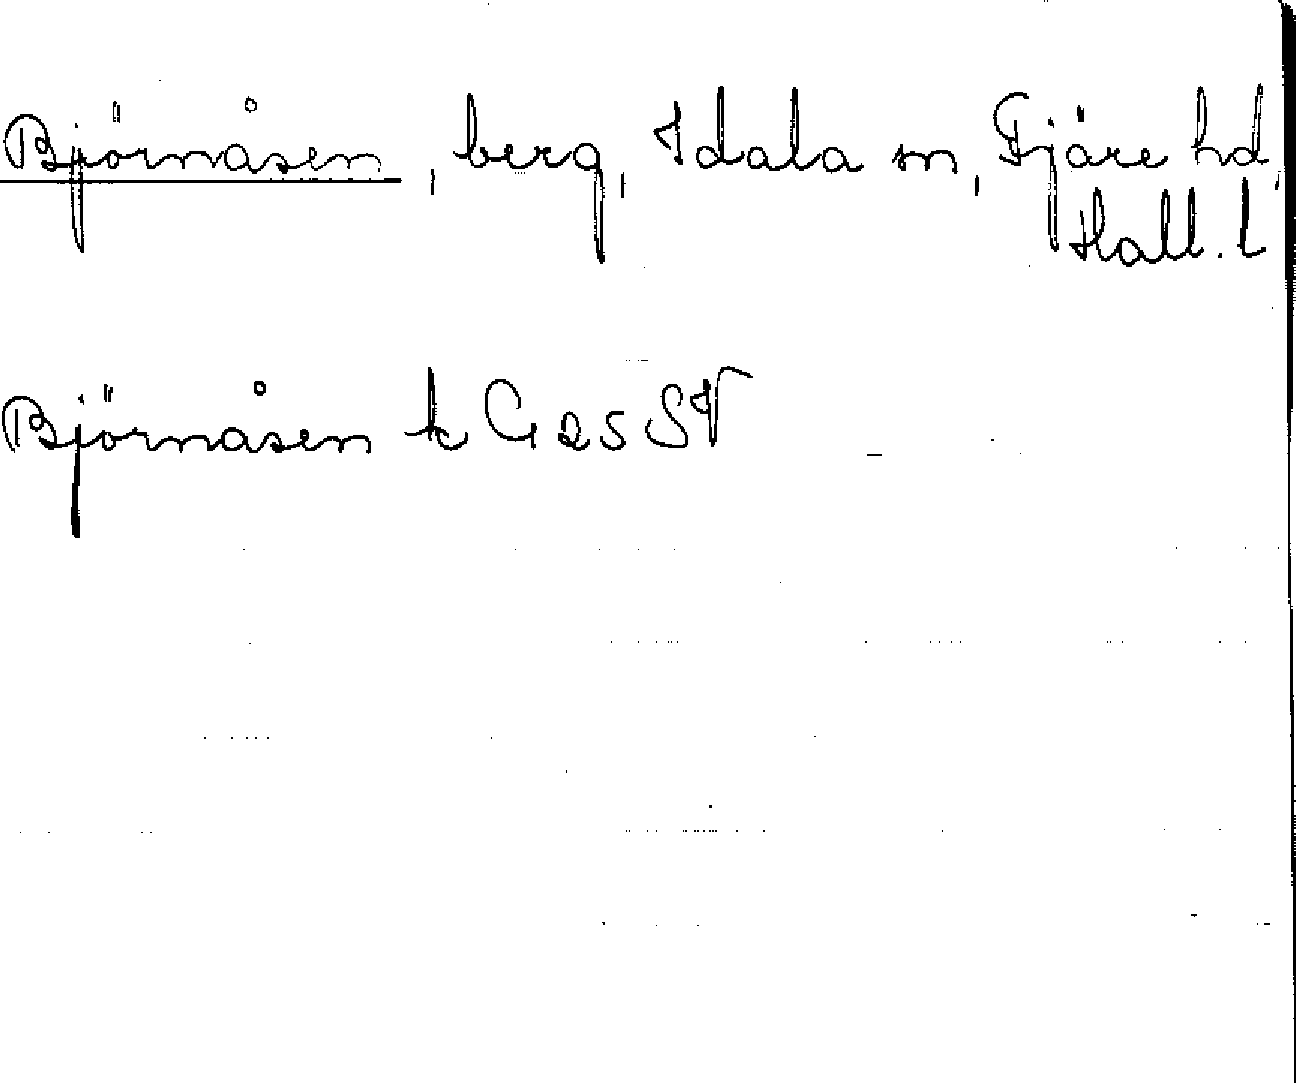 Björnåsen, berg, Idala sn, Fjäre hd,
Hall. l
Björnåsen k G 25 SV